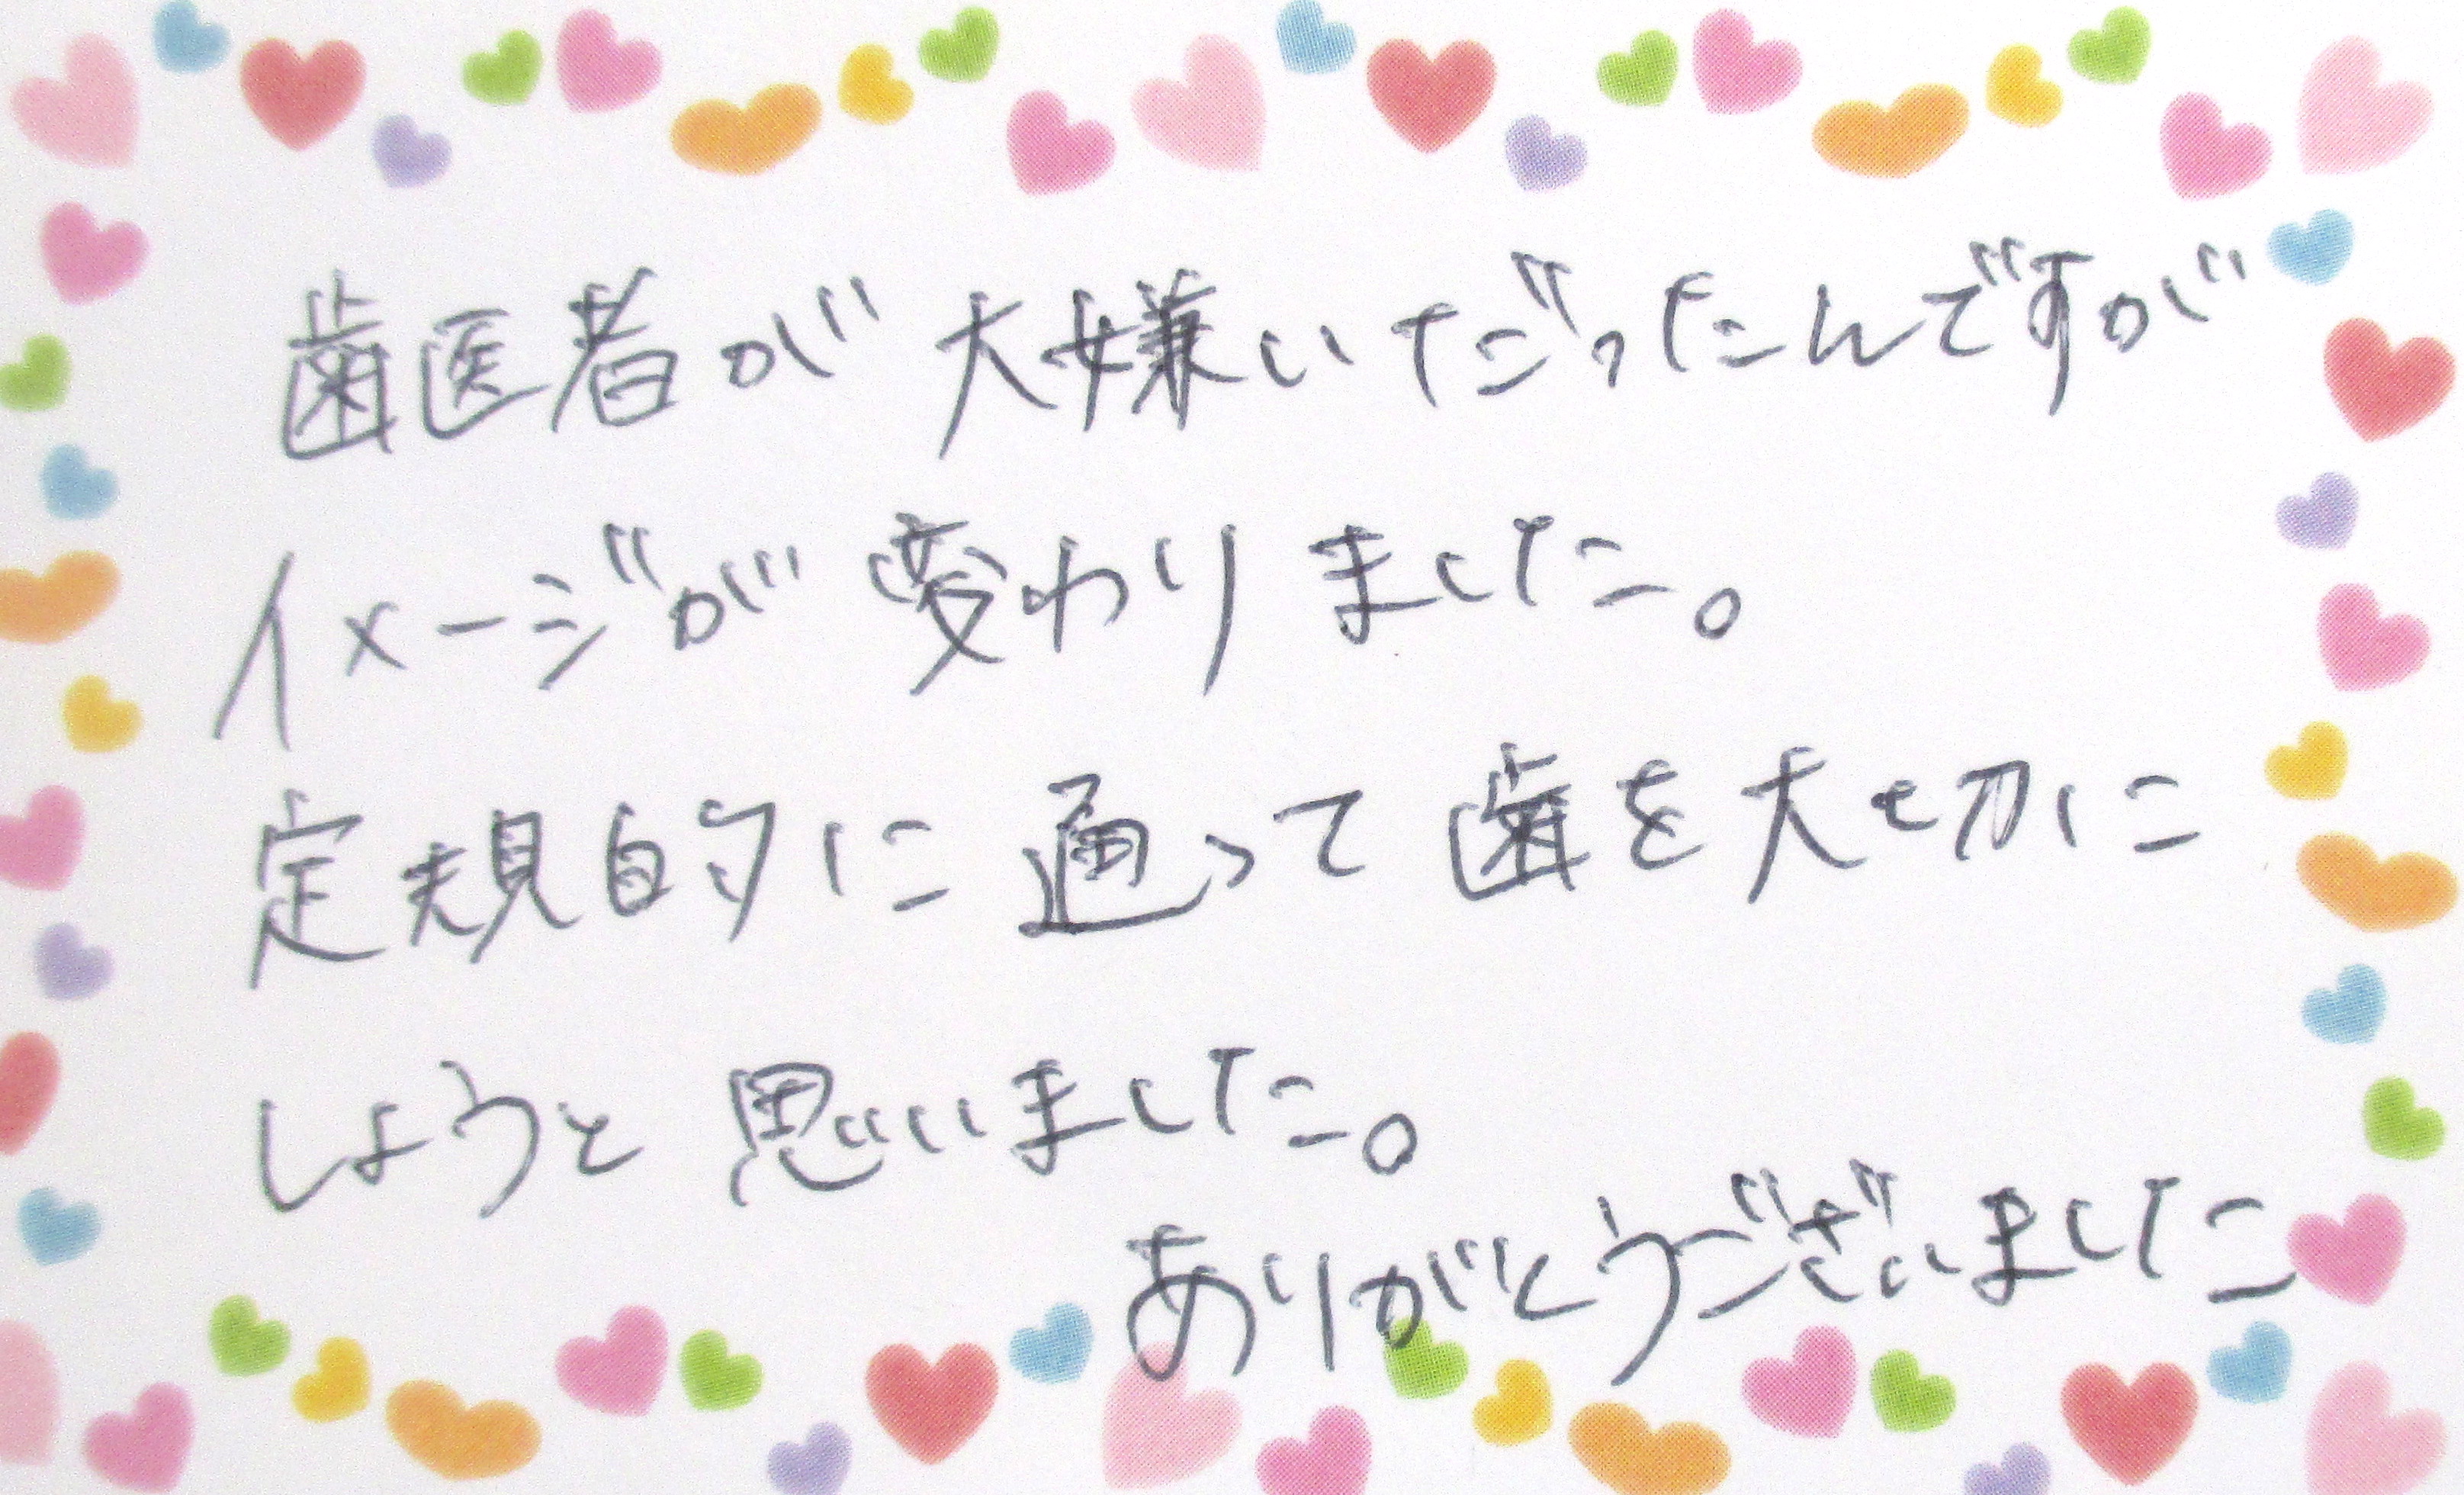 歯医者が大嫌いだったんですが
イメージが変わりました。
定規的に通って歯を大切に
しようと思いました。
ありがとうございました